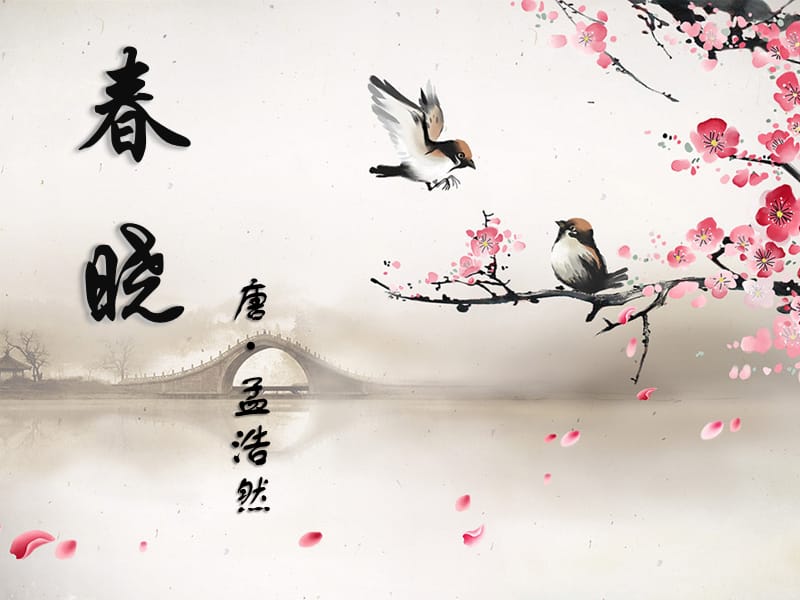 春晓
唐·孟浩然